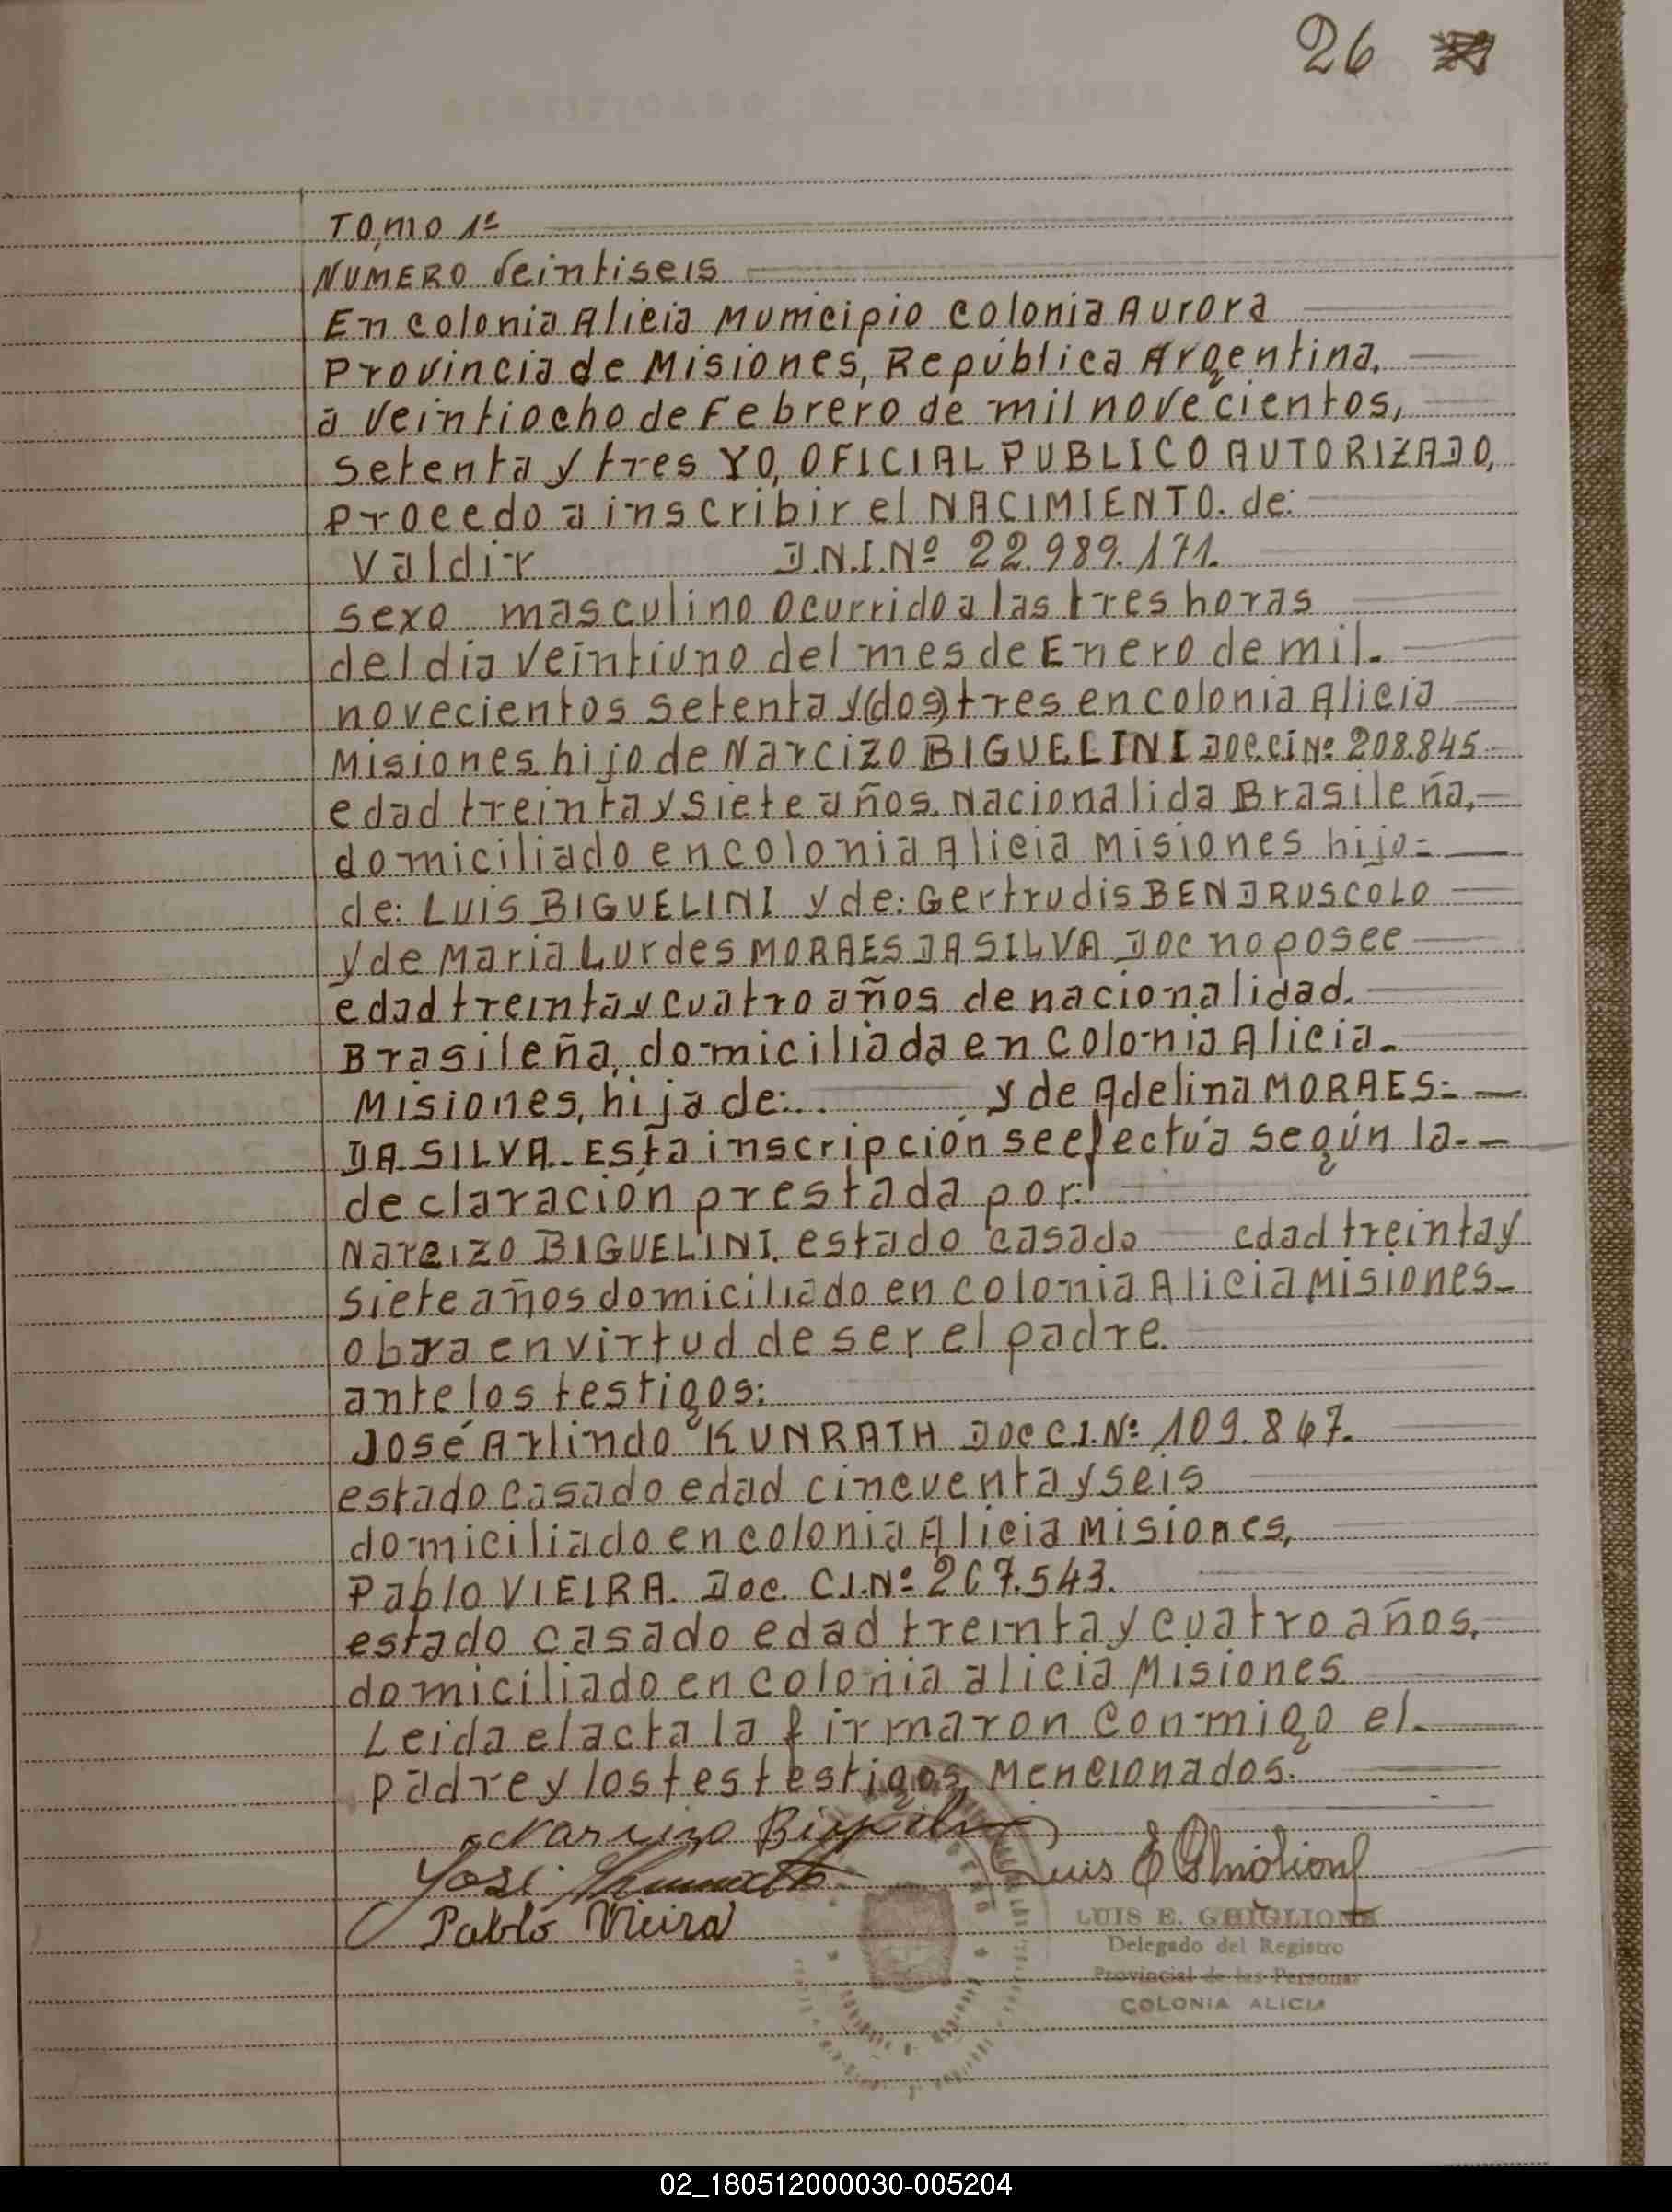 26
TOMO 1º
NUMERO Veintiseis
En colonia Alicia Municipio colonia Aurora
Provincia de Misiones, República Argentina,
a Veintiocho de Febrero de mil novecientos,
setenta y tres YO, OFICIAL PUBLICO AUTORIZADO,
procedo a inscribir el NACIMIENTO. de:
Valdir D.N.I.Nº 22.989.171.
sexo masculino ocurrido a las tres horas
del dia veintiuno del mes de Enero de mil.
novecientos setenta y (dos) tres en colonia Alicia
Misiones hijo de Narcizo BIGUELINI DOC.C.I Nº 208.845
edad treinta y siete años. Nacionalida Brasileña,
domiciliado en colonia Alicia Misiones hijo=
de: LUIS BIGUELINI y de: Gertrudis BENDRUSCOLO
y de Maria Lurdes MORAES DA SILVA DOC no posee
edad treinta y cuatro años de nacionalidad.
Brasileña, domiciliada en Colonia Alicia.
Misiones, hija de: y de Adelina MORAES=
DA SILVA. Esta inscripción se efectúa según la.
declaración prestada por:
Narcizo BIGUELINI. estado casado edad treinta y
siete años domiciliado en colonia Alicia Misiones
obra en virtud de ser el padre.
ante los testigos:
José Arlindo KUNRATH DOC C.I.Nº 109.867.
estado casado edad cincuenta y seis
domiciliado en colonia Alicia Misiones,
Pablo VIEIRA. Doc. C.I.Nº 267.543.
estado casado edad treinta y cuatro años,
domiciliado en colonia alicia Misiones
Leida el acta la firmaron con migo el.
padre y los tes testigos Mencionados.
Narcizo Biguelini
José Kunrath Luis E Ghiglione
Pablo Vieira
LUIS E. GHIGLIONE
Delegado del Registro
Provincial de las Personas
COLONIA ALICIA
02_180512000030-005204